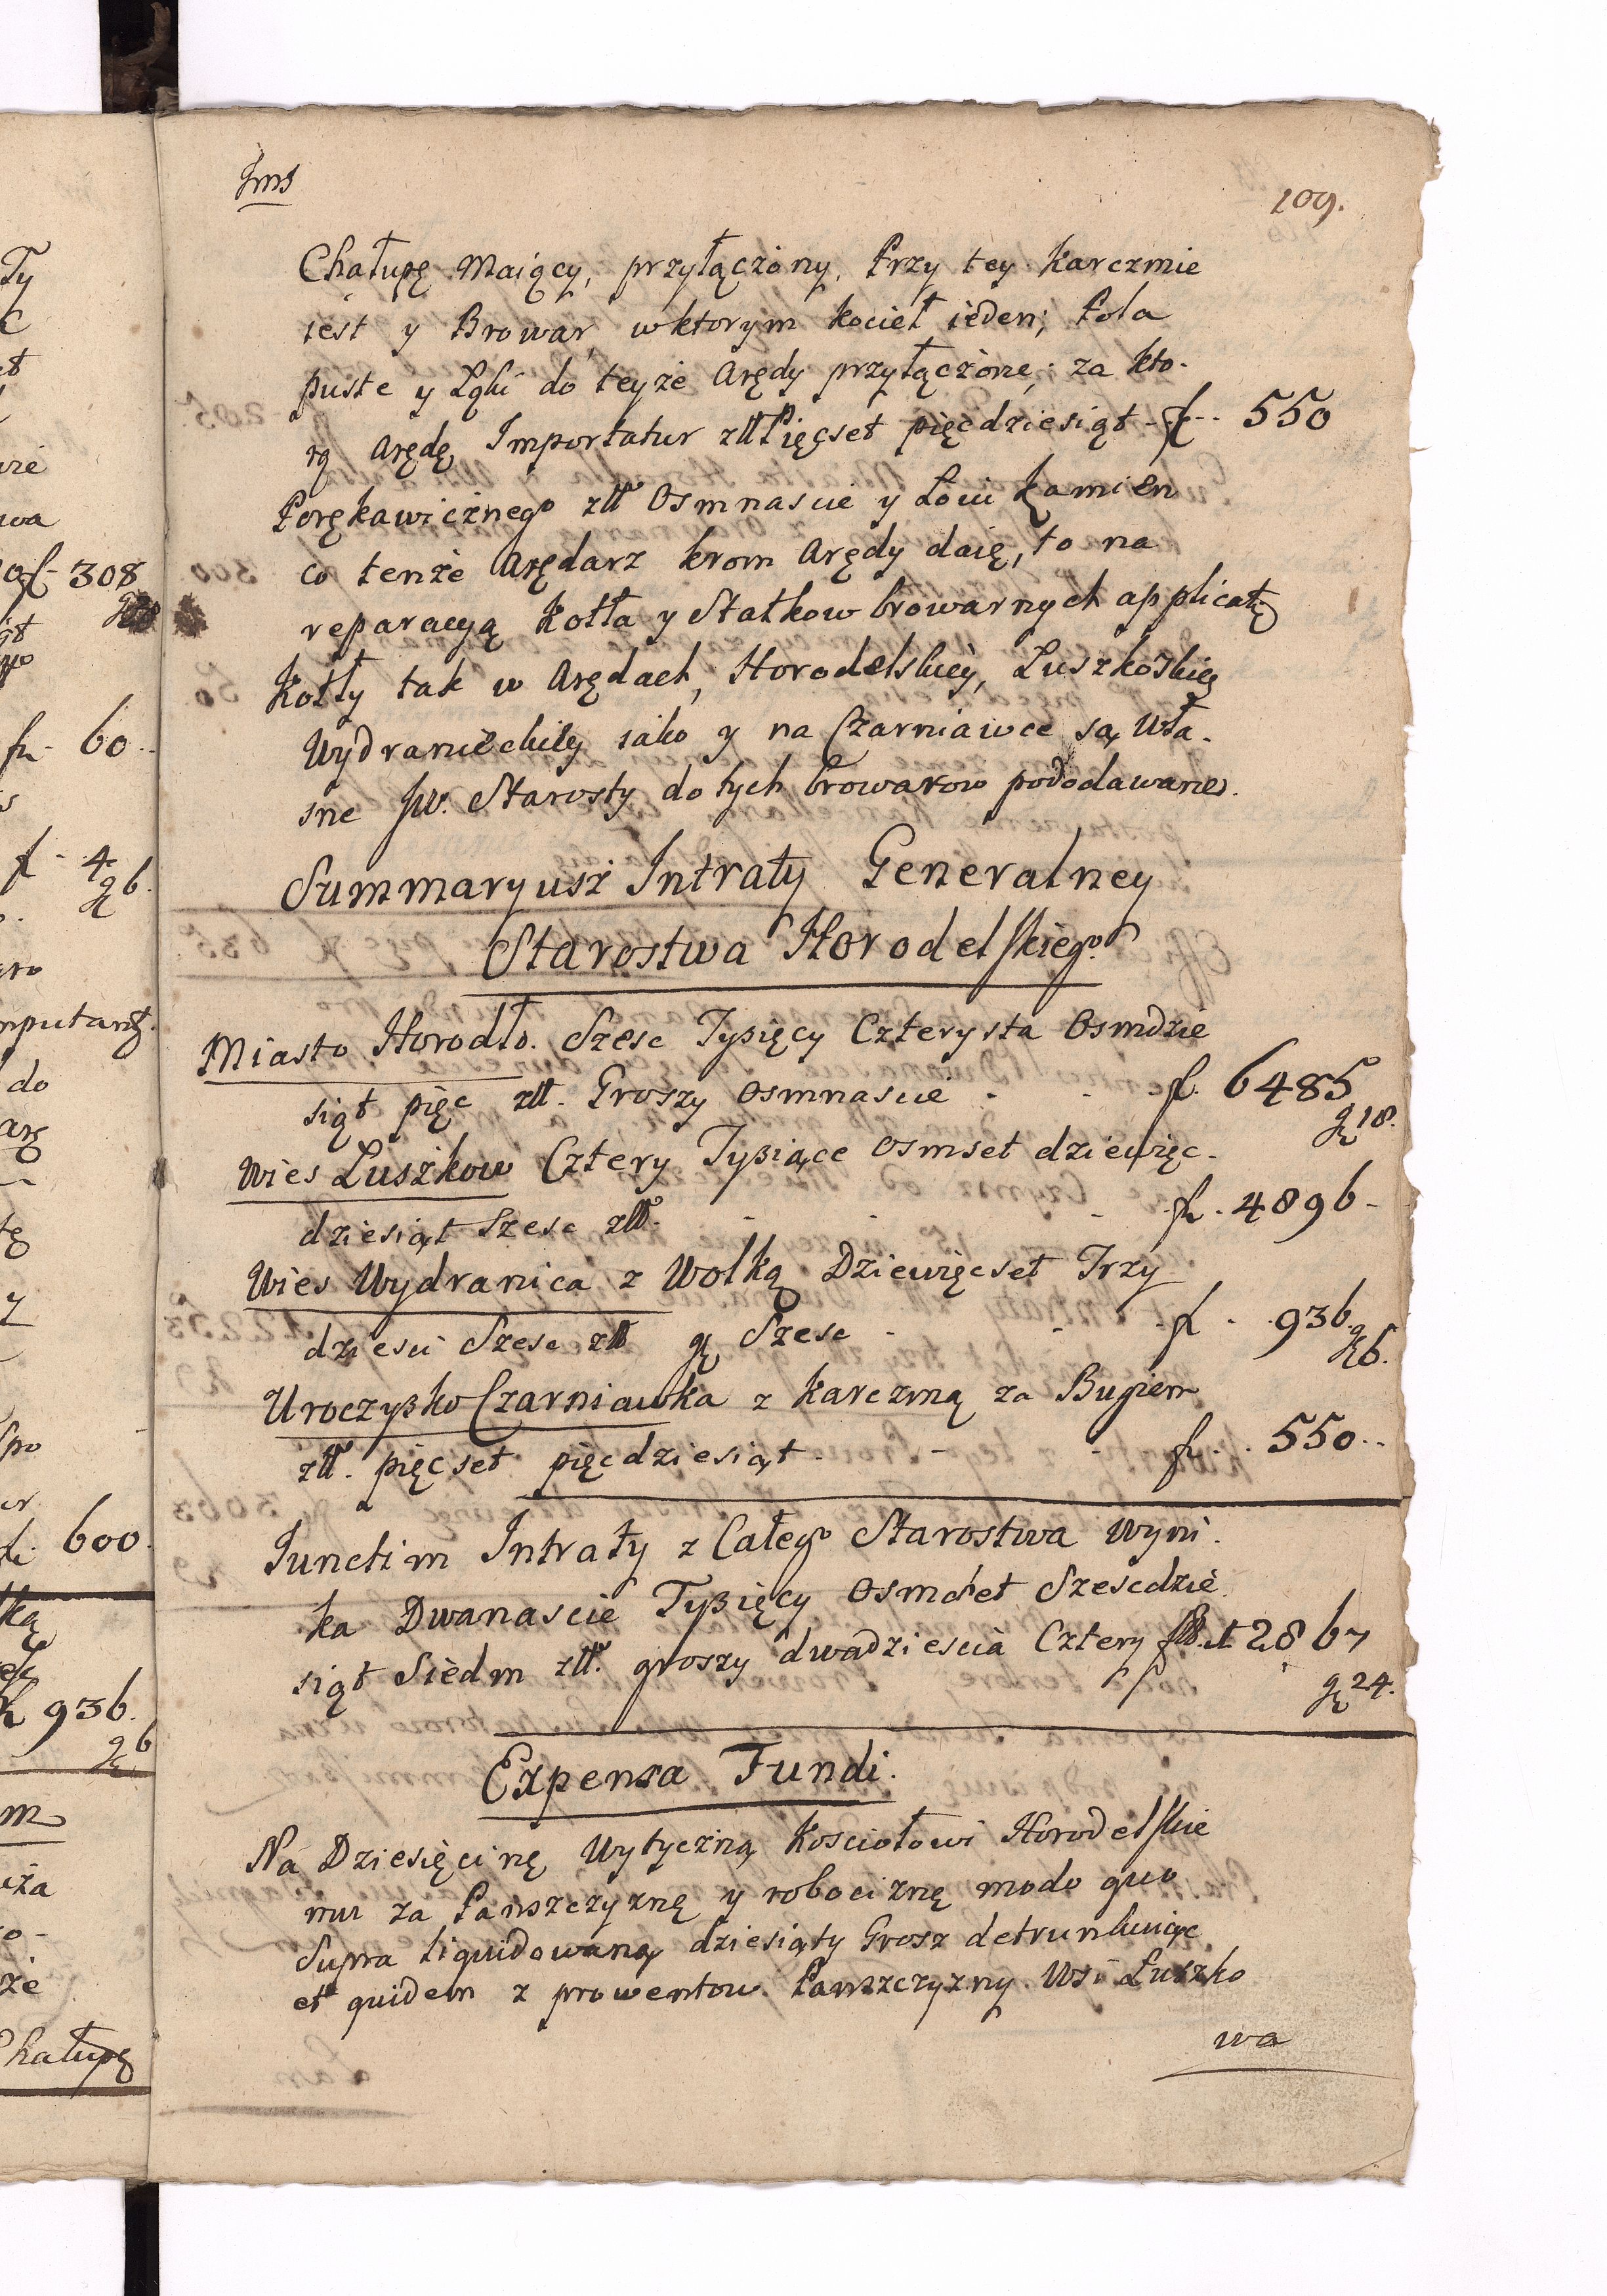 109.
Chałupę Maiący, przyłączony, Przy tey Karczmie
iest y Browar, wktorym kocieł ieden; Pola
puste y Łąki do teyże Arędy przyłączone; za kto-
rą Arędę Importatur złł Pięcset pięcdziesiąt - f - 550
Porękawicznego złł Osmnascie y Łoiu Kamien
co tenże Arędarz krom Arędy daię, to na
reparacyą Kotła y Statkow browarnych applicatę
Kotły tak w Arędach, Horodelskiey, Luszkoskiey
Wydranieckiey iako y na Czarniawce są wła-
sne JW. Starosty do tych browarow pododawane.
Summaryusz Intraty Generalney
Starostwa Horodelskiego
Miasto Horodło. Szesc Tysięcy Czterysta Osmdzie
siąt pięc złł. Groszy Osmnascie - - f. 6485
gr 18.
Wies Luszkow Cztery Tysiące Osmset dziewięc-
dziesiąt Szesc złł. - - - f. 4896 -
Wies Wydranica z Wolką Dziewięcset Trzy
dziesci Szesc złł gr Szesc - - f - 936.
gr 6.
Uroczysko Czarniawka z karczmą za Bugiem
złł. pięcset pięcdziesiąt - - - f - 550 -
Iunctim Intraty z Całego Starostwa Wyni-
ka Dwanascie Tysięcy Osmset Szescdzie
siąt Siedm złł. groszy dwadziescia Cztery f. 12867
gr 24.
Expensa Fundi.
Na Dziesięcinę Wytyczną Kosciołowi Horodelskie
mu za Panszczyznę y robociznę modo quo
Supra liquidowaną dziesiąty Grosz detrunkuiąc
et quidem z prowentow Panszczyzny Wsi Łuszko
wa
308
60
4
gr 6.
do
600
936.
gr 6
Chałupę